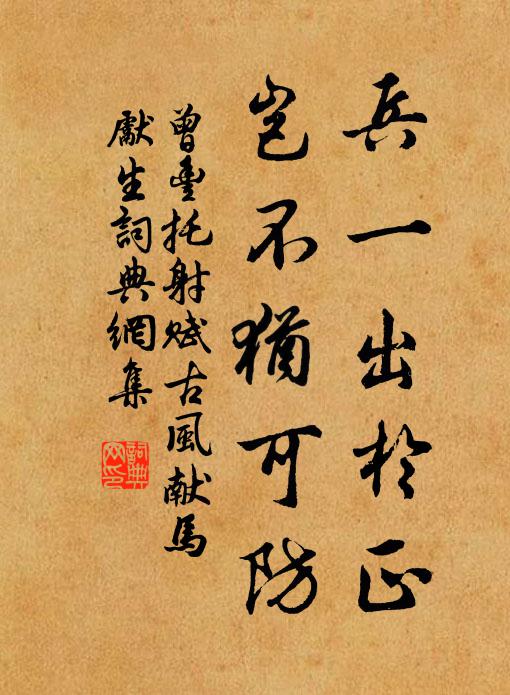 兵一出於正
豈不猶可防
曾豐托射賦古風献馬
獻生詞典網集
詞典网印